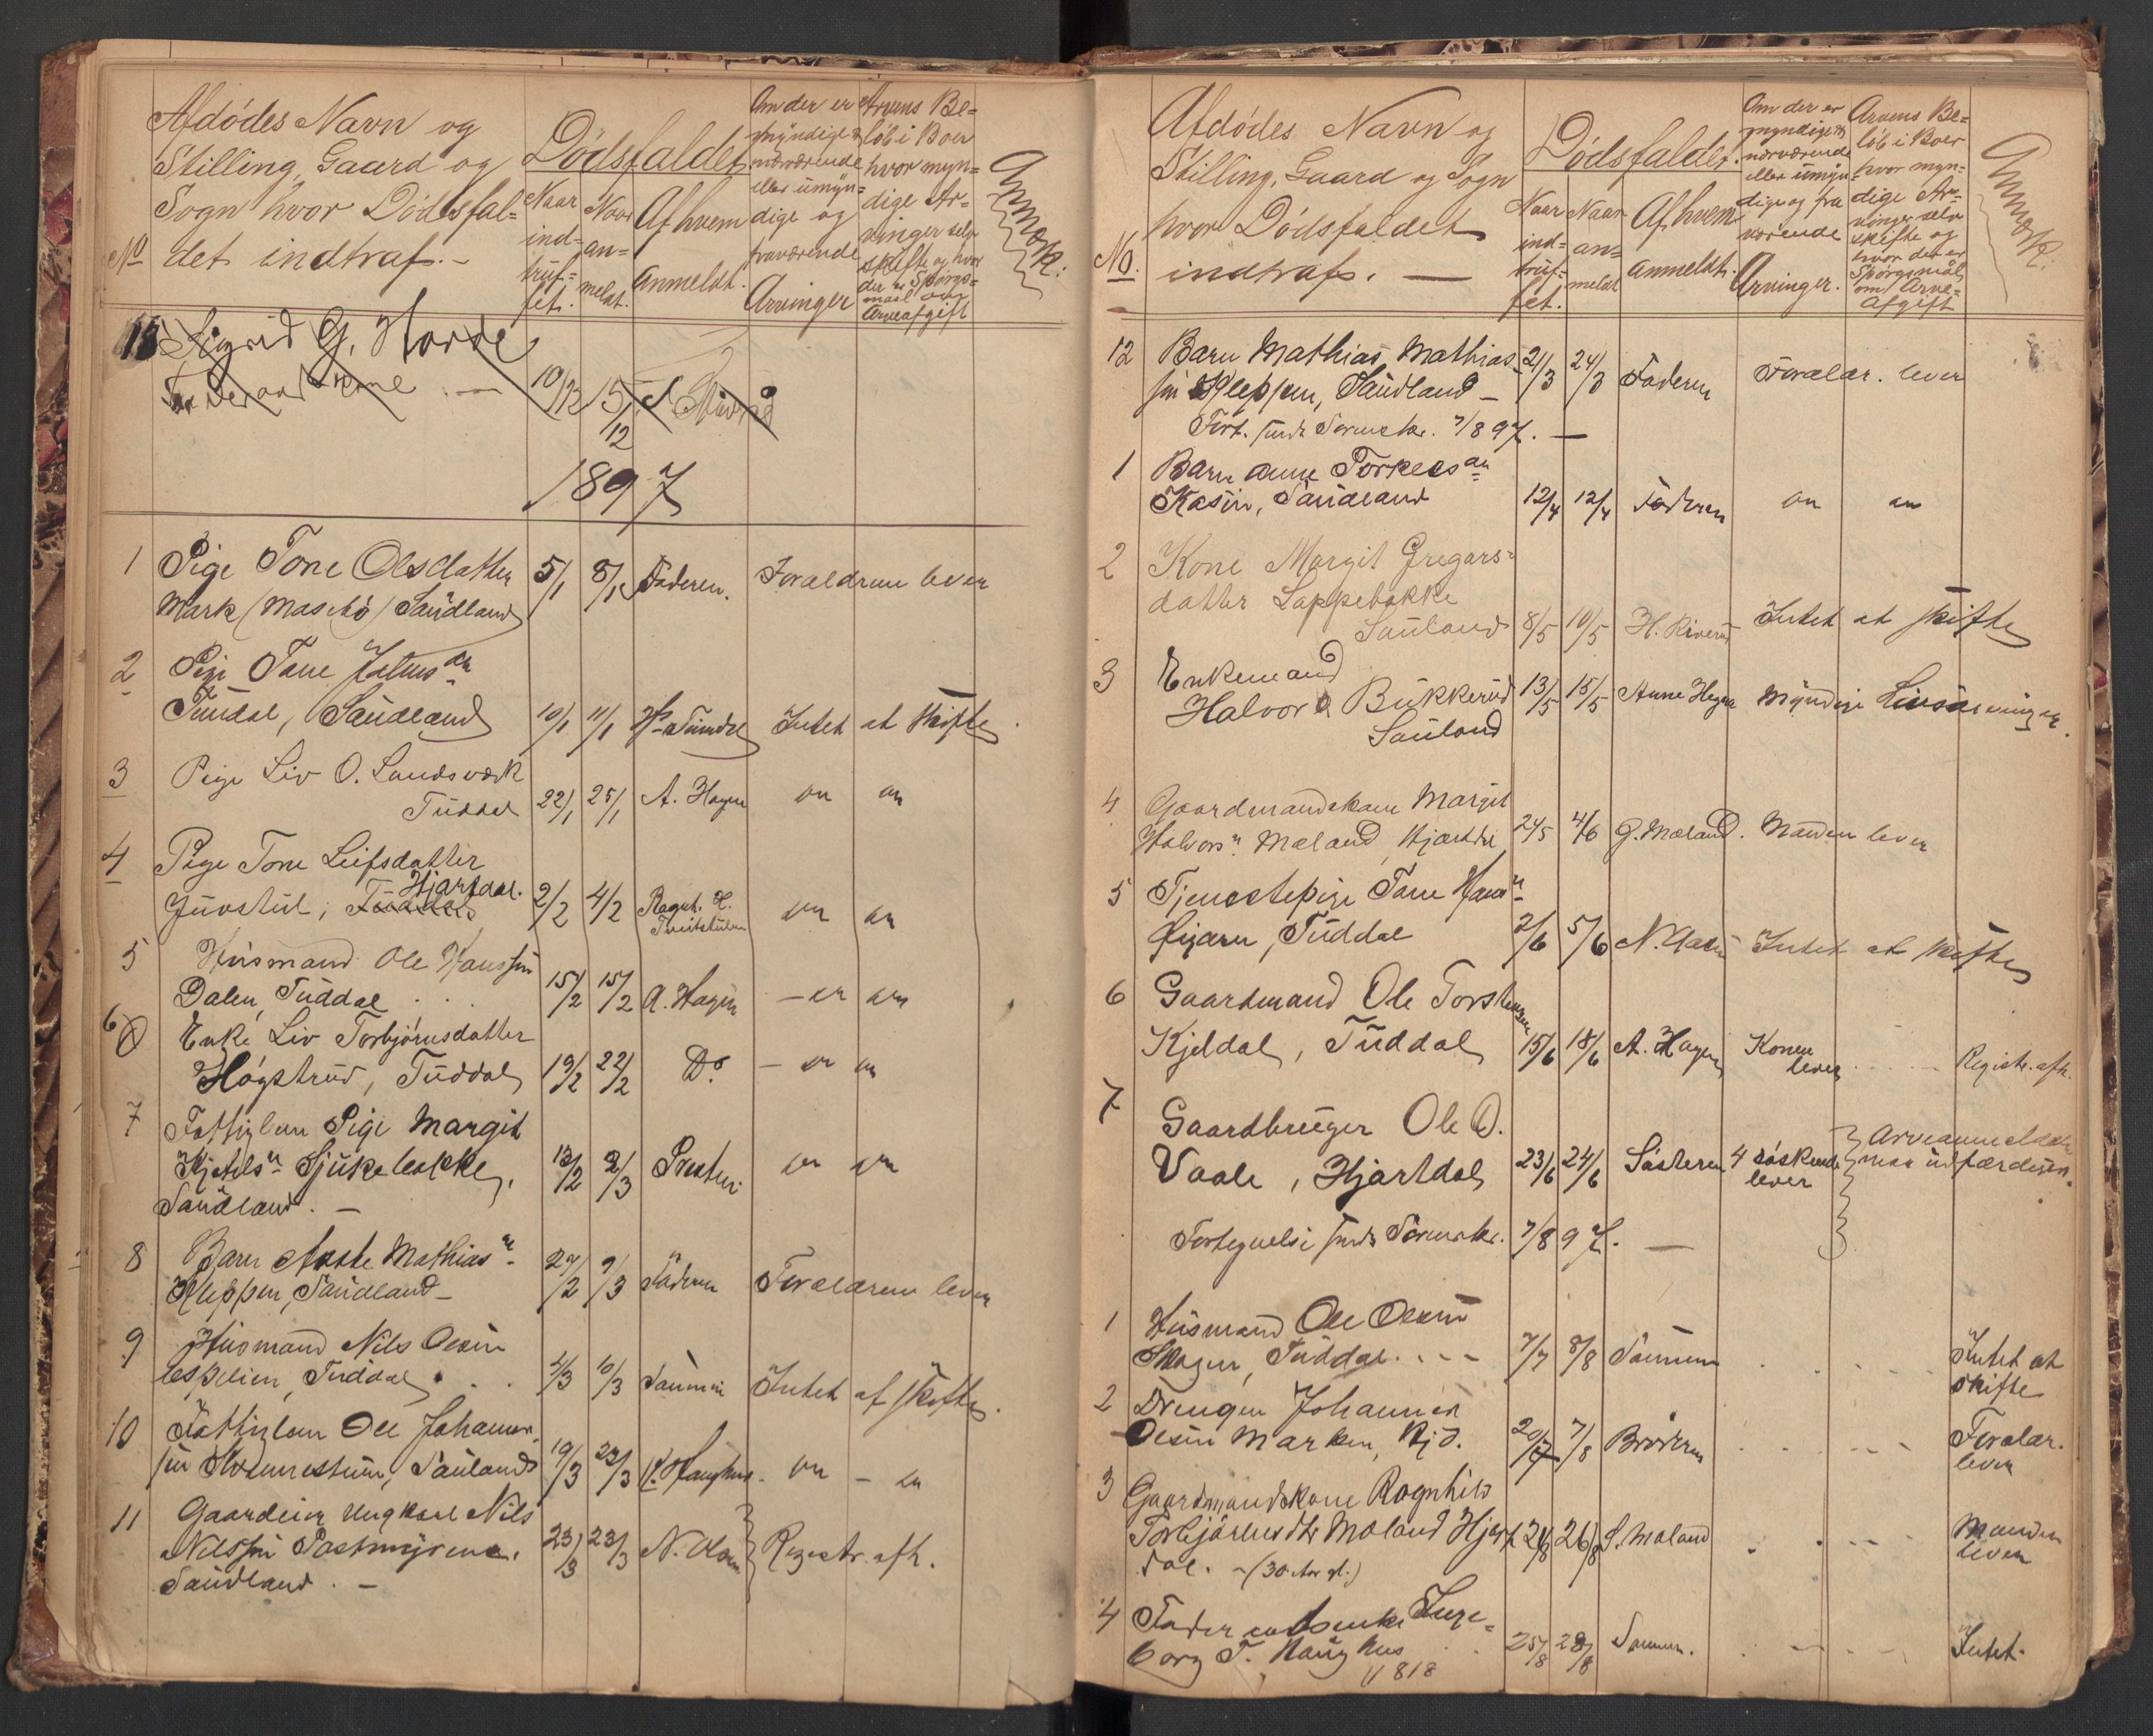 Afdödes Navn og
Stilling, Gaard og
Sogn hvor Dödsfal-
No det indtraf. -
Dödsfaldet.
Naar
ind-
truf-
fet.
Naar
an-
meldt.
Af hvem
anmeldt.
Om der er
myndige &
nærværende
eller umyn-
dige og
fraværende
Arvinger
Arvens Be-
löb i Boer
hvor myn-
dige Ar-
vinger selv
skifte og hvor
der er Spörgs-
maal om
Arveafgift
Anmærk:
15 Sigrid G.
10/12 15/12
1897
1 Pige Tone Olsdatter
Mark (Maseb̈ö) Saudland 5/1 8/1 Faderen. Forældrene lever
2 Pige Tone
Tindal, Saudland 10/1 11/1 Intet at skifte.
3 Pige Liv O. Landsværk
Tuddal 22/1 25/1 A. Hagen on on
4 Pige Tone Leifsdatter
Hjartdal.
Juvstul, Tuddal 2/2 4/2 Ragnh. H. on on
5 Husmand Ole Hansson
Dalen, Tuddal 15/2 15/2 A. Hagen - on on
6 Enke Liv Torbjörnsdatter
Högstrud, Tuddal 19/2 22/2 Do. - on on
7 Fattiglem Pige Margit
Kjetilsn Sjukebakke, 12/2 2/3 Presten on on
Saudland. -
8 Barn Aaste Mathiasn
Kleppen, Saudland - 27/2 9/3 Faderen Forældrene lever
9 Husmand Nils Olsen
Espelien, Tuddal 4/3 10/3 Sönnen Intet at skifte.
10 Fattiglem Ole Johannes-
sön Saulands 19/3 22/3 on - on
11 Gaardeier Ungkarl Nils
Nilssön Pastmyrene, 23/3 23/3 N. Olsen Registr. afh.
Saudland. -
Afdödes Navn og
Stilling, Gaard og Sogn
hvor Dödsfaldet
No. indtraf. -
Dödsfaldet.
Naar
ind-
truf-
fet.
Naar
an-
meldt
Af hvem
anmeldt.
Om der er
myndige &
nærværende
eller umyn-
dige og fra
værende
Arvinger.
Arvens Be-
löb i Boer
hvor myn-
dige Ar-
vinger selv
skifte og
hvor der er
Spörgsmål
om Arve-
Afgift
Anmærk:
12 Barn Mathias Mathias-
sön Kleppen, Saudland - 21/3 24/3 Faderen Forældr. lever
Fort. sendt Sorenskr. 7/8 97. -
1 Barn Anne Torkelsdn
Kasin, Saudland 12/4 12/4 Faderen on on
2 Kone Margit Gregars-
datter Lappebakke
Sauland 8/5 10/5 Intet at skifte
3 Enkemand
Halvor Bukkerud 13/5 15/5 Anne Hegna Myndige Livsarvinger.
Sauland
4 Gaardmandskone Margit
Halvorsn Mæland, Hjartdal 24/5 4/6 G. Mæland. Manden lever
5 Tjenestepige Tone
Tuddal 2/6 5/6 Intet at skifte
6 Gaardmand Ole Torstensen
Kjeldal, Tuddal 15/6 18/6 A. Hagen Konen
lever Registr. afh.
7 Gaardbruger Ole O.
Vaale, Hjartdal 23/6 24/6 Södteren 4 söskende
lever
Arveanmeldelse
maa udfærdiges.
Fortegnelse sendt Sorenskr. 7/8 97. -
1 Husmand Ole Olsen
Skogen, Tuddal. 7/7 8/8 Sönnen Intet at
skifte
2 Drengen Johannes
Olsen Marken, Hjd. 20/7 7/8 Broderen Forældr.
lever
3 Gaardmandskone Ragnhild
Torbjörnsdtr Mæland Hjart 24/8 26/8 S. Mæland Manden
lever
dal. - (30 Aar gl.)
4 Inge-
borg T. Haughus 25/8 28/8 Sönnen. Intet.
1818